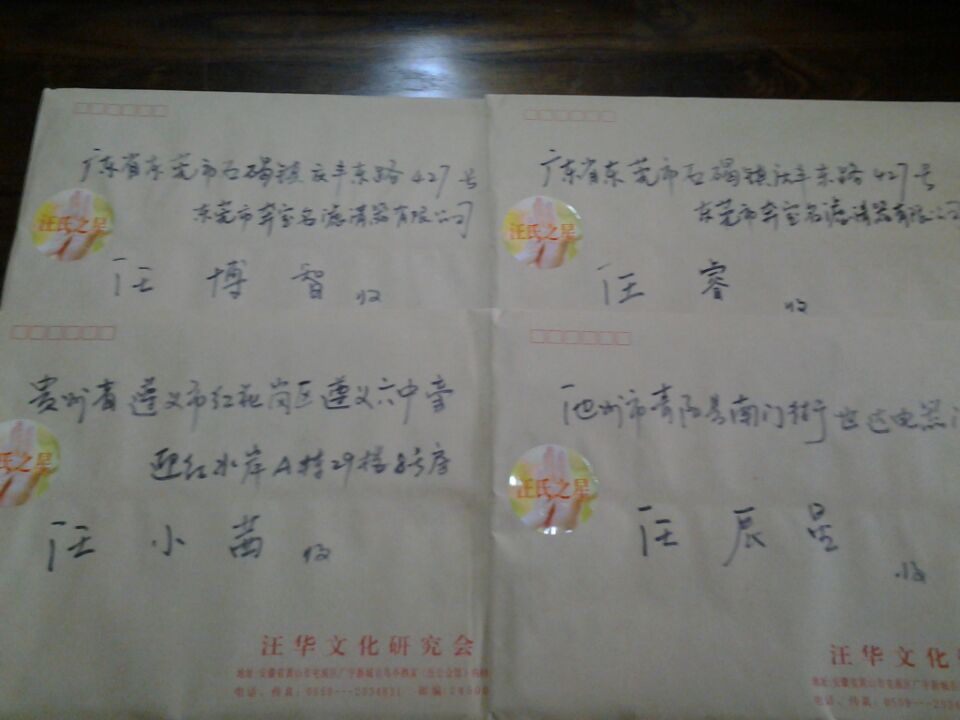 广东省东莞市石碣镇庆丰东路427号
东莞市 滤清器有限公司
汪氏之星
汪 博 智 收
广东省东莞市石碣镇庆丰东路427号
东莞市 滤清器有限公司
汪氏之星
汪 睿 收
贵州省遵义市红花岗区遵义六中旁
迎红水岸A栋29楼8号房
氏之星
汪 小 茜 收
汪华文化研究会
电话、传真:0559---2534831 邮编:24500
池州市青阳县南门街 电器
汪氏之星
汪 辰 星
收
汪华文化
电话、传真:0559---2534